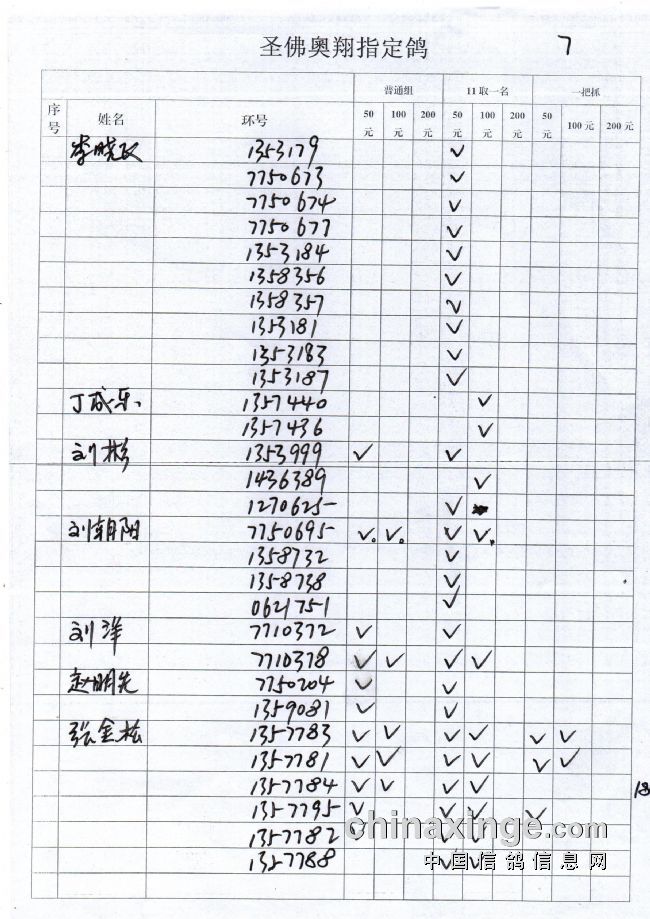 圣佛奥翔指定鸽 7
普通组 11取一名 一把抓
序号 姓名 环号 50元 100元 200元 50元 100元 200元 50元 100元 200元
李晓政 1353179 ✓
7750673 ✓
7750674 ✓
7750677 ✓
1353184 ✓
1358356 ✓
1358357 ✓
1353181 ✓
1353183 ✓
1353187 ✓
丁成乐 1357440 ✓
1357436 ✓
刘彬 1353999 ✓ ✓
1436389 ✓
1270625 ✓
刘朝阳 7750695 ✓ ✓ ✓ ✓
1358732 ✓
1358738 ✓
0621751 ✓
刘洋 7710372 ✓ ✓
7710378 ✓ ✓ ✓ ✓
赵明先 7750204 ✓ ✓
1359081 ✓ ✓
张金松 1357783 ✓ ✓ ✓ ✓ ✓ ✓
1357781 ✓ ✓ ✓ ✓ ✓ ✓
1357784 ✓ ✓ ✓ ✓
1357795 ✓ ✓ ✓ ✓
1357782 ✓ ✓ ✓
1357788 ✓ ✓
chinaxinge.com
中国信鸽信息网